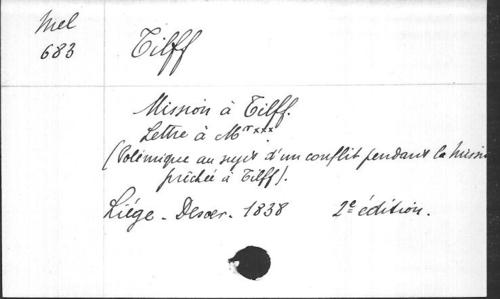 Mel
683
Tilff
Mission à Tilff.
Lettre à Mr xxx.
(Polémique au sujet d'un conflit pendant la mission
prêchée à Tilff).
Liége - Desoer - 1838 2e édition.